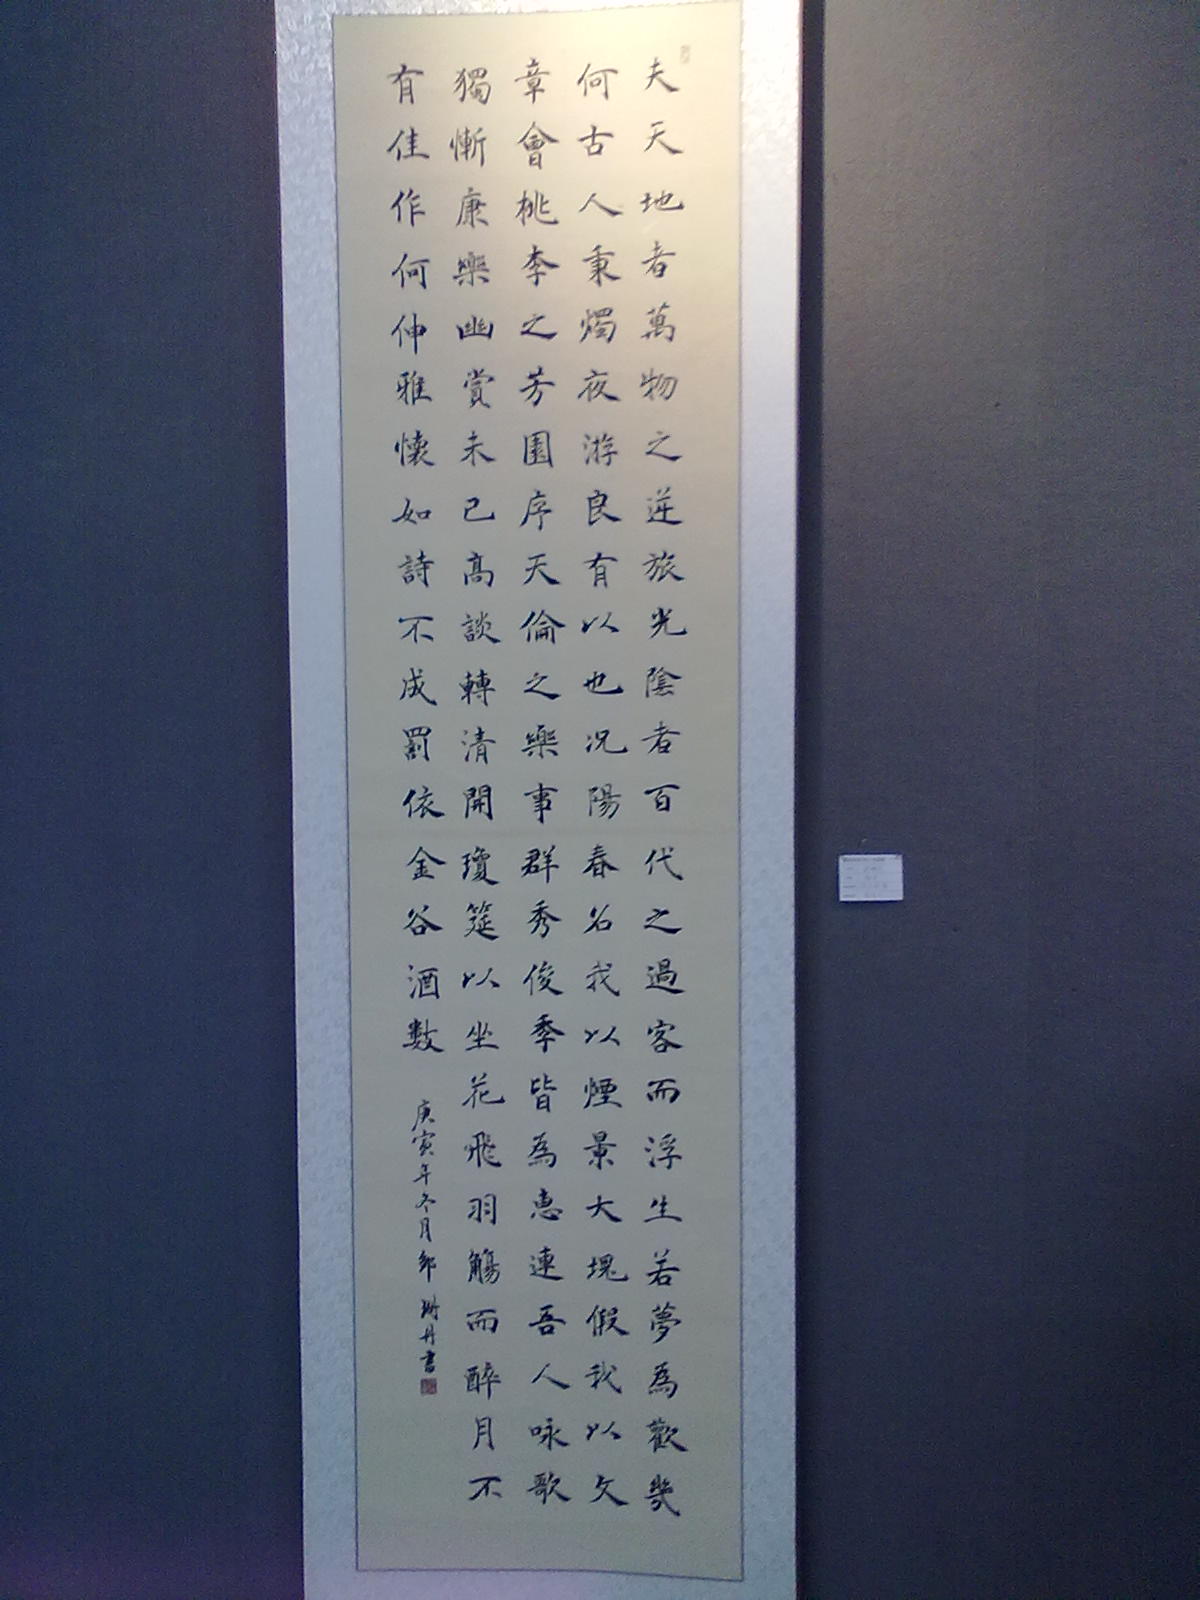 夫天地者萬物之逆旅光陰者百代之過客而浮生若夢為歡幾
何古人秉燭夜游良有以也况陽春召我以煙景大塊假我以文
章會桃李之芳園序天倫之樂事群秀俊季皆為惠連吾人咏歌
獨慚康樂幽賞未已高談轉清開瓊筵以坐花飛羽觴而醉月不
有佳作何伸雅懷如詩不成罰依金谷酒數
庚寅年冬月鄒 丹書